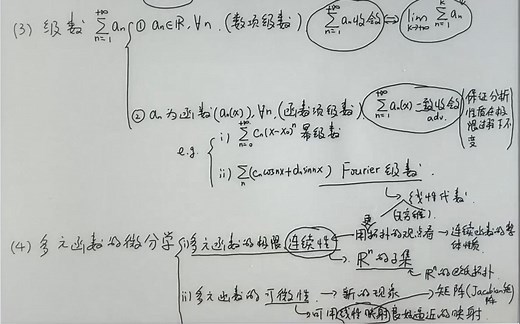 (3) 级数 $\sum_{n=1}^{+\infty} a_n$
① $a_n \in \mathbb{R}, \forall n.$ (数项级数) $\sum_{n=1}^{+\infty} a_n$ 收敛 ⇔ $\lim_{k\to+\infty} \sum_{n=1}^{k} a_n$
② $a_n$ 为函数 $(a_n(x)), \forall n.$ (函数项级数) $\sum_{n=1}^{+\infty} a_n(x)$ 一致收敛
adv.
(保证分析
性质在极
限过程下不
变
e.g.
i) $\sum_{n=0}^{+\infty} c_n(x-x_0)^n$ 幂级数
ii) $\sum_n (c_n \cos nx + d_n \sin nx)$ Fourier 级数.
→ 线性代数
(4) 多元函数的微分学
i) 多元函数的极限 连续性 → 用拓扑的观点看 → 连续函数的整
体性质
→ $\mathbb{R}^n$ 的子集
$\mathbb{R}^n$ 的拓扑
ii) 多元函数的可微性. → 新的现象
矩阵 (Jacobian矩
阵
→ 可用线性映射 逼近的映射